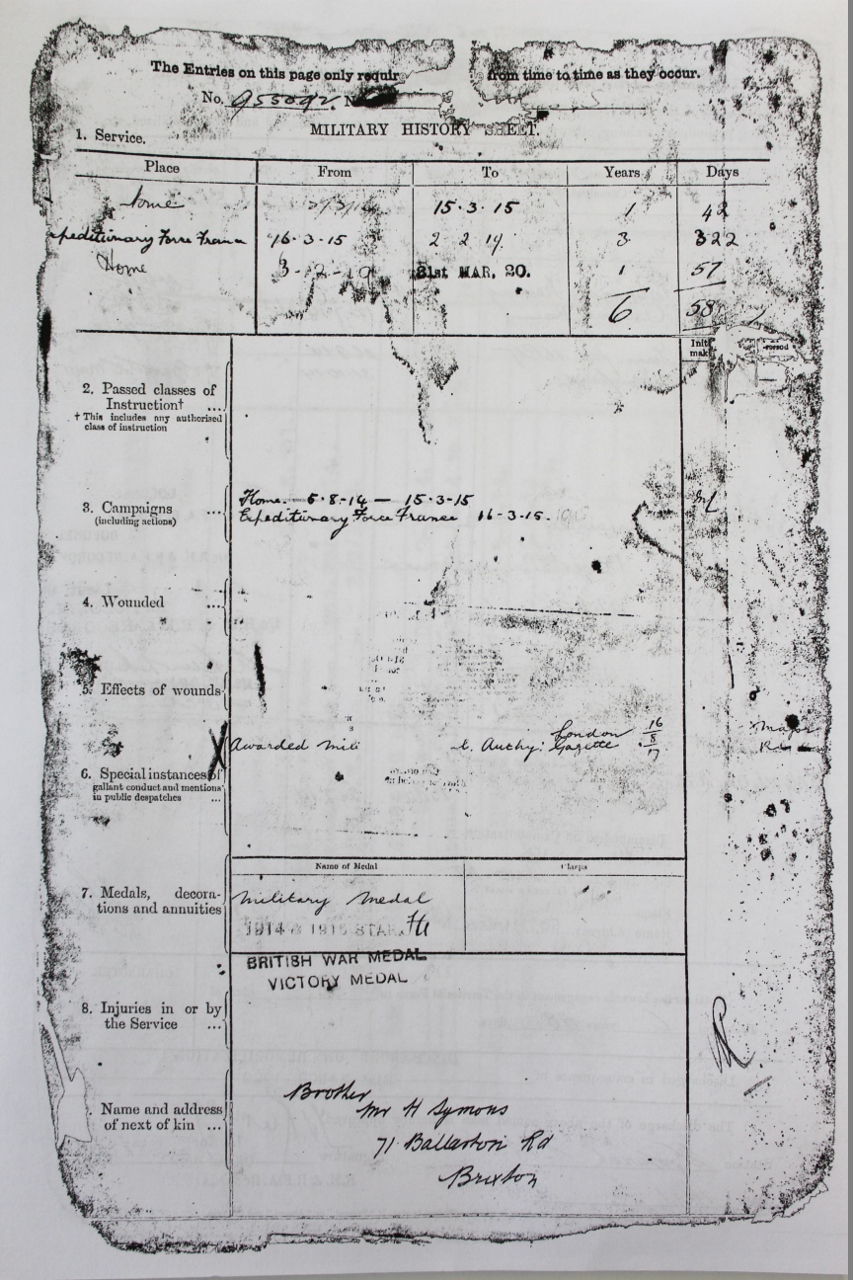 The Entries on this page only requir from time to time as they occur.
No. 955092
MILITARY HISTORY SHEET.
1. Service.
Place From To Years Days
Home 15·3·15 1 42
peditionary Force France 16·3·15 2 2 19. 3 322
Home 3-2-19 31st MAR. 20. 1 57
6 58
Init
mak
2. Passed classes of
Instruction† ...
† This includes any authorised
class of instruction
3. Campaigns ...
(including actions)
Home. 5·8·14 — 15·3·15
Expeditionary Force France 16·3·15.
4. Wounded ...
5. Effects of wounds
Awarded Mili t. Auchy: London Gazette 16/8/17
Major
6. Special instances of
gallant conduct and mentions
in public despatches ...
Name of Medal Clasps
7. Medals, decora-
tions and annuities
Military Medal
1914 & 1915 STAR.
BRITISH WAR MEDAL
VICTORY MEDAL
8. Injuries in or by
the Service ...
Name and address
of next of kin ...
Brother
Mr H Symons
71 Rd
Brixton